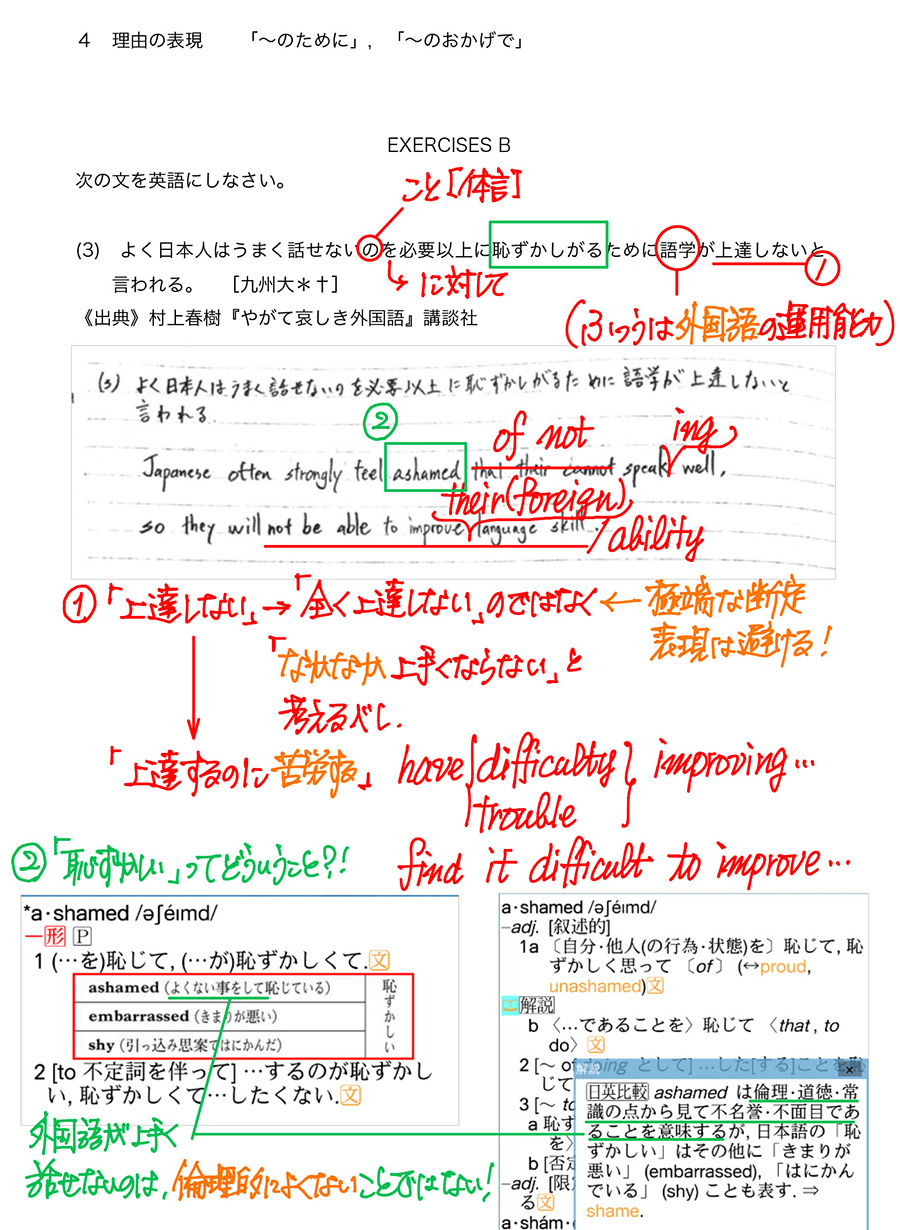 4 理由の表現 「～のために」,「～のおかげで」
EXERCISES B
次の文を英語にしなさい。
こと[体言]
(3) よく日本人はうまく話せないのを必要以上に恥ずかしがるために語学が上達しないと
言われる。 [九州大＊†]
に対して
①
《出典》村上春樹『やがて哀しき外国語』講談社
(ふつうは外国語の運用能力)
(3) よく日本人はうまく話せないのを必要以上に恥ずかしがるために語学が上達しないと
言われる.
②
of not
ing
Japanese often strongly feel ashamed that their cannot speak well,
their (foreign)
so they will not be able to improve language skill.
/ability
①「上達しない」→「全く上達しない」のではなく ← 極端な断定
表現は避ける!
「なかなか上手くならない」と
考えるべし.
「上達するのに苦労する」 have {difficulty} improving…
trouble
find it difficult to improve…
②「恥ずかしい」ってどういうこと?!
*a·shamed /əʃéɪmd/
一形 P
1 (…を)恥じて, (…が)恥ずかしくて.文
ashamed (よくない事をして恥じている)
embarrassed (きまりが悪い)
shy (引っ込み思案ではにかんだ)
恥ずかしい
2 [to 不定詞を伴って] …するのが恥ずかし
い, 恥ずかしくて…したくない.文
外国語が上手く
話せないのは, 倫理的によくないことではない!
a·shamed /əʃéɪmd/
–adj. [叙述的]
1a 〔自分·他人(の行為·状態)を〕恥じて, 恥
ずかしく思って 〔of〕 (↔proud,
unashamed)文
解説
b 〈…であることを〉恥じて 〈that, to
do〉文
2 [～ of doing として] …した[する]ことを恥
じて
3 [～ to
a 恥ず
を〉
b [否定
–adj. [限定
る文
a·shám·
解説
×
日英比較 ashamed は倫理·道徳·常
識の点から見て不名誉·不面目であ
ることを意味するが, 日本語の「恥
ずかしい」はその他に「きまりが
悪い」 (embarrassed), 「はにかん
でいる」 (shy) ことも表す. ⇒
shame.